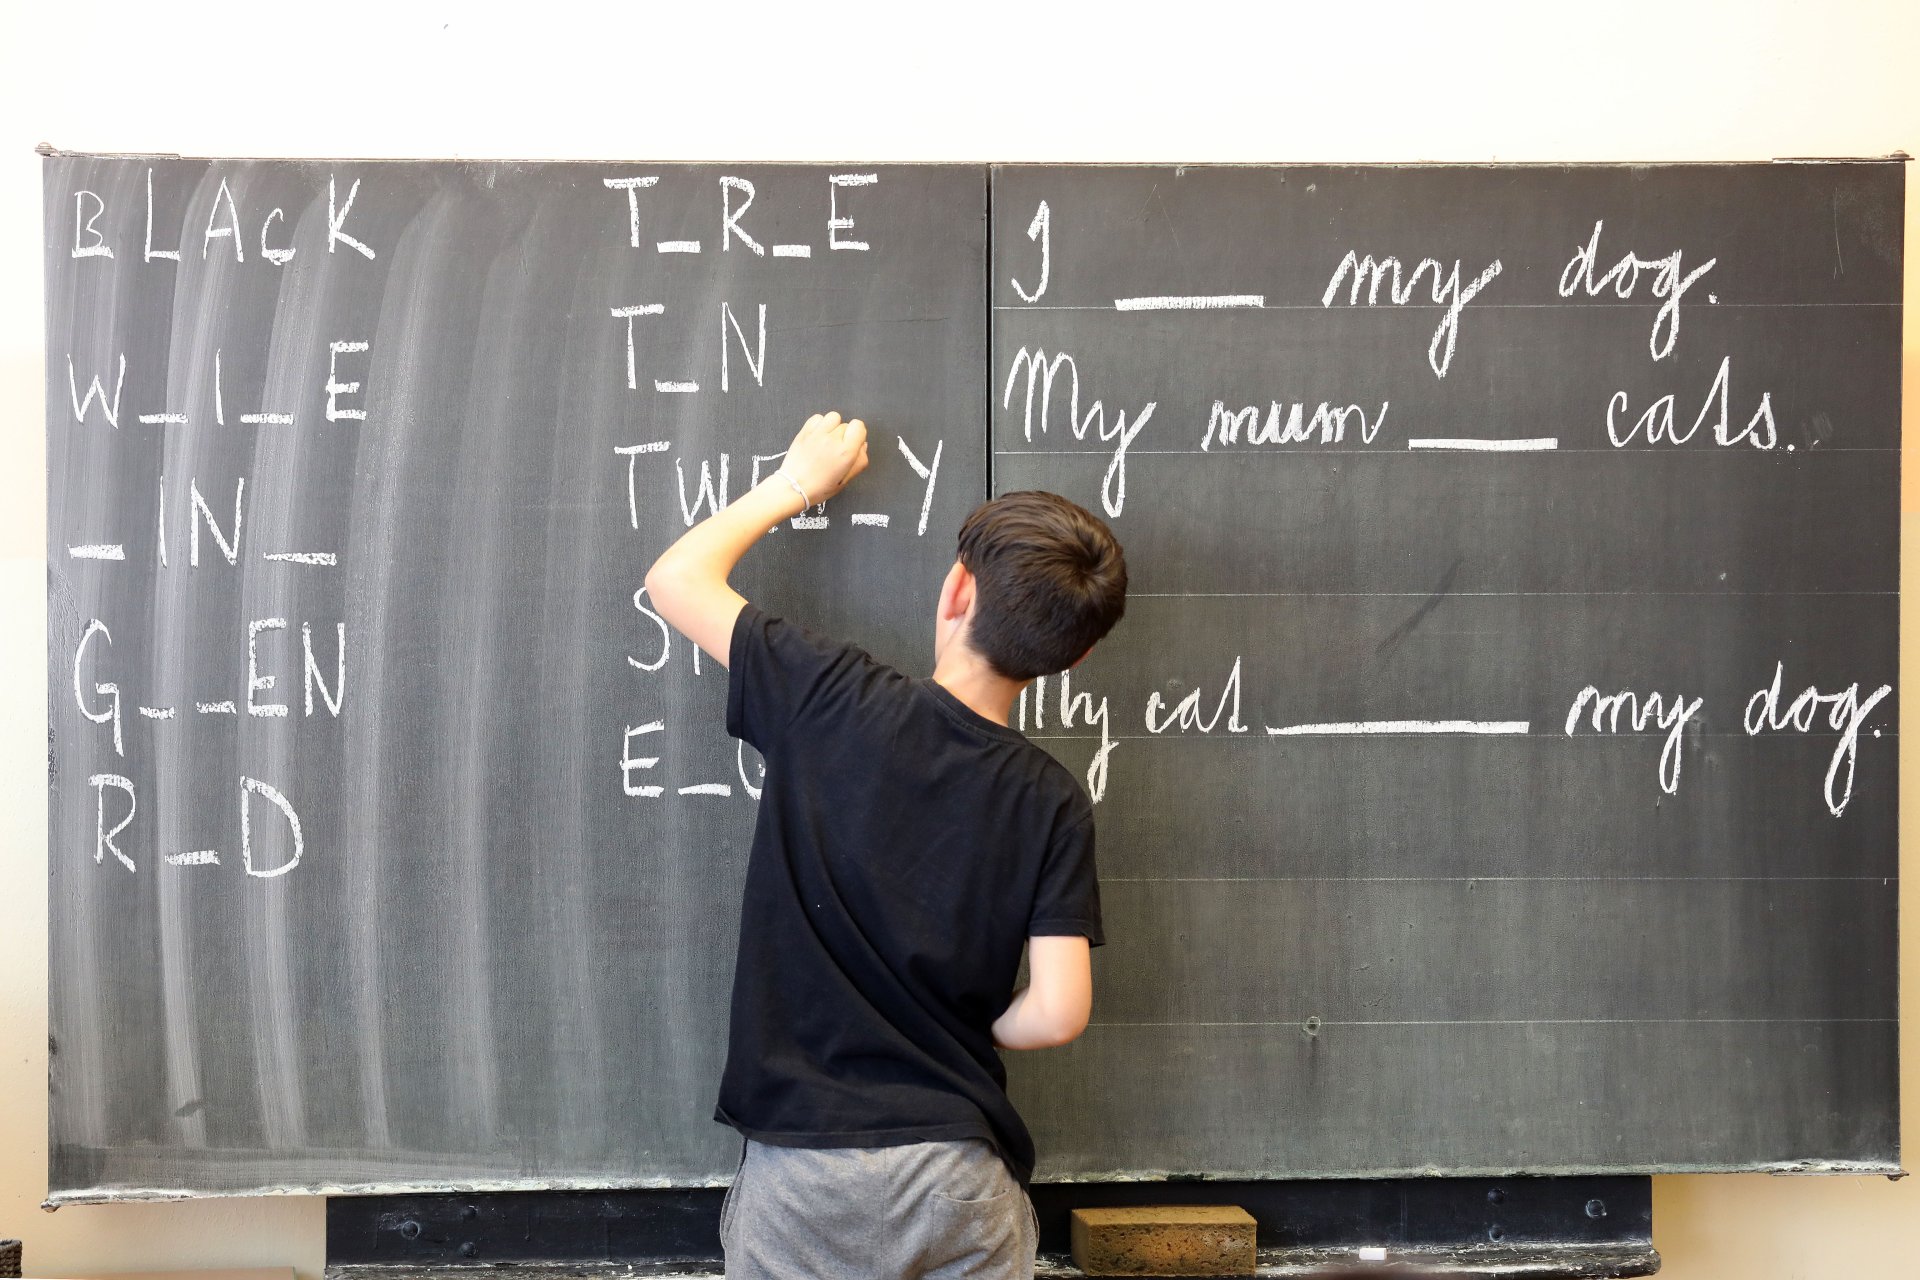 BLACK
W_I_E
_IN_
G__EN
R_D
T_R_E
T_N
I ___ my dog.
My mum ___ cats.
My cat ___ my dog.